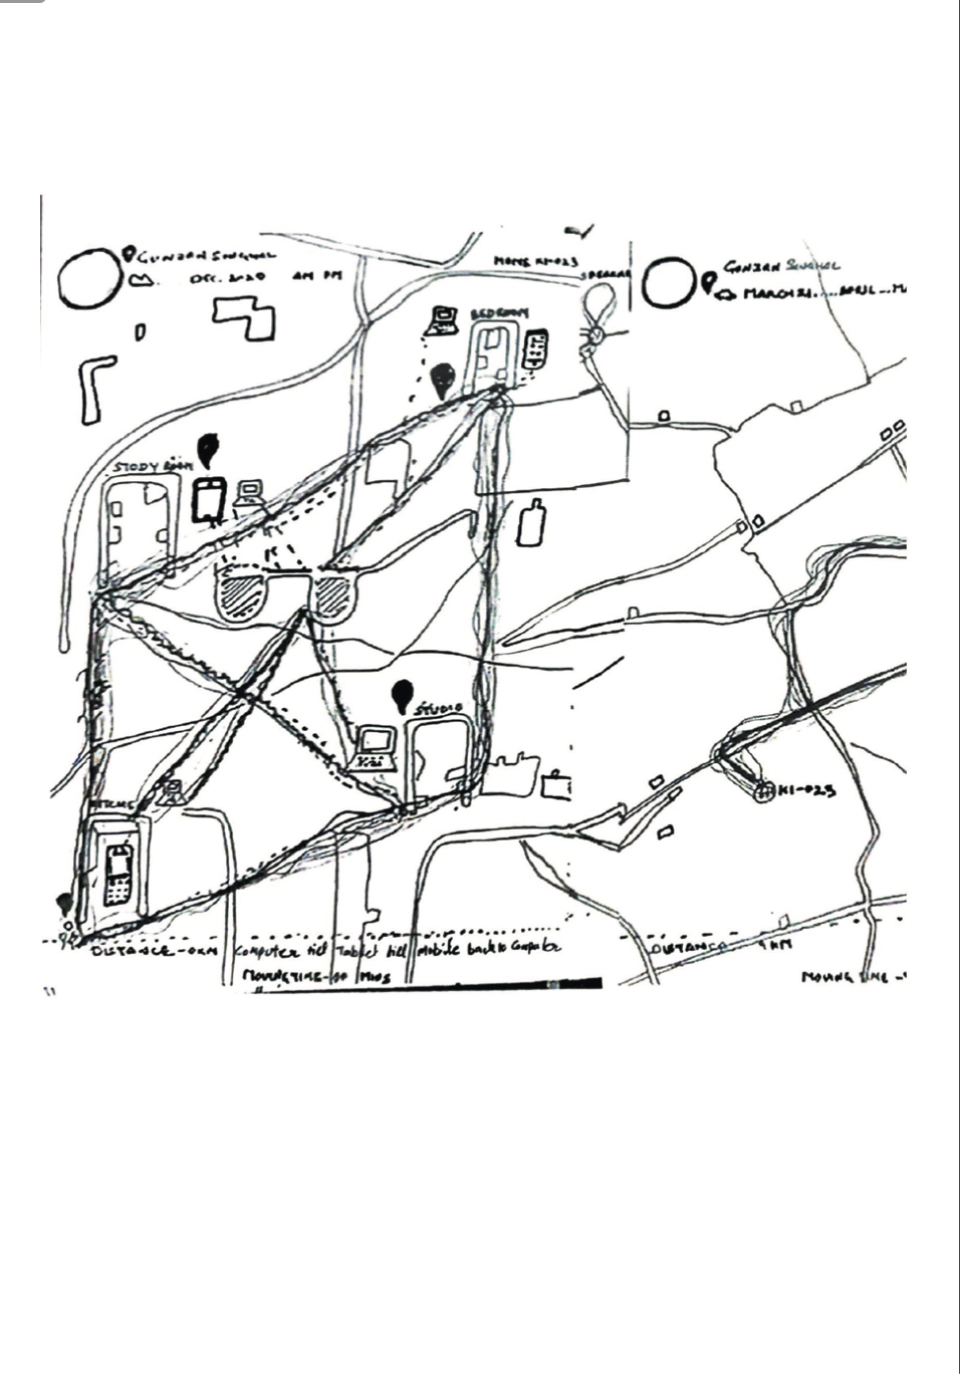 GUNJAN SINGHAL
DEC. 2020 AM PM
HOME KI-023
BEDROOM
STUDY ROOM
STUDIO
DISTANCE - 0 KM Computer till Tablet till Mobile back to Computer
MOVING TIME - 00 MINS
GUNJAN SINGHAL
MARCH 21.... APRIL ...
KI-023
DISTANCE 9 KM
MOVING TIME -